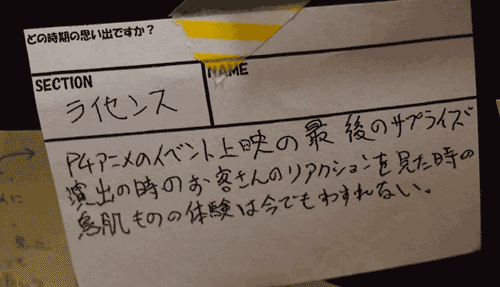 どの時期の思い出ですか?
SECTION
NAME
ライセンス
P4アニメのイベント上映の最後のサプライズ
演出の時のお客さんのリアクションを見た時の
鳥肌ものの体験は今でもわすれない。